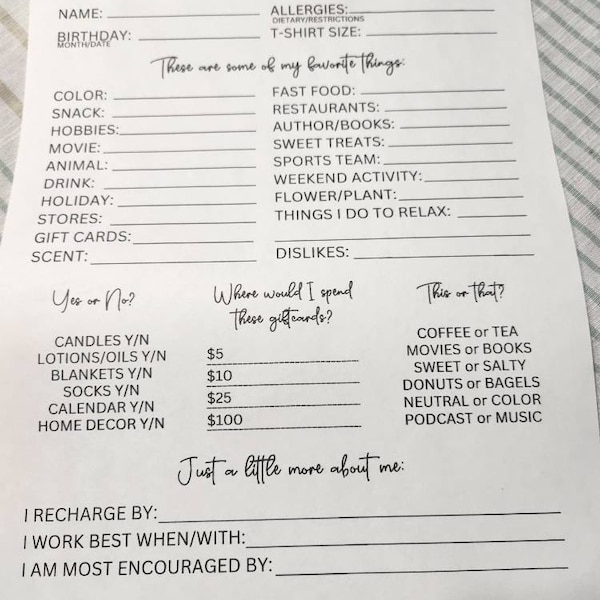 NAME:
BIRTHDAY:
MONTH/DATE
ALLERGIES:
DIETARY/RESTRICTIONS
T-SHIRT SIZE:
These are some of my favorite things:
COLOR:
SNACK:
HOBBIES:
MOVIE:
ANIMAL:
DRINK:
HOLIDAY:
STORES:
GIFT CARDS:
SCENT:
FAST FOOD:
RESTAURANTS:
AUTHOR/BOOKS:
SWEET TREATS:
SPORTS TEAM:
WEEKEND ACTIVITY:
FLOWER/PLANT:
THINGS I DO TO RELAX:
DISLIKES:
Yes or No?
CANDLES Y/N
LOTIONS/OILS Y/N
BLANKETS Y/N
SOCKS Y/N
CALENDAR Y/N
HOME DECOR Y/N
Where would I spend
these giftcards?
$5
$10
$25
$100
This or That?
COFFEE or TEA
MOVIES or BOOKS
SWEET or SALTY
DONUTS or BAGELS
NEUTRAL or COLOR
PODCAST or MUSIC
Just a little more about me:
I RECHARGE BY:
I WORK BEST WHEN/WITH:
I AM MOST ENCOURAGED BY: